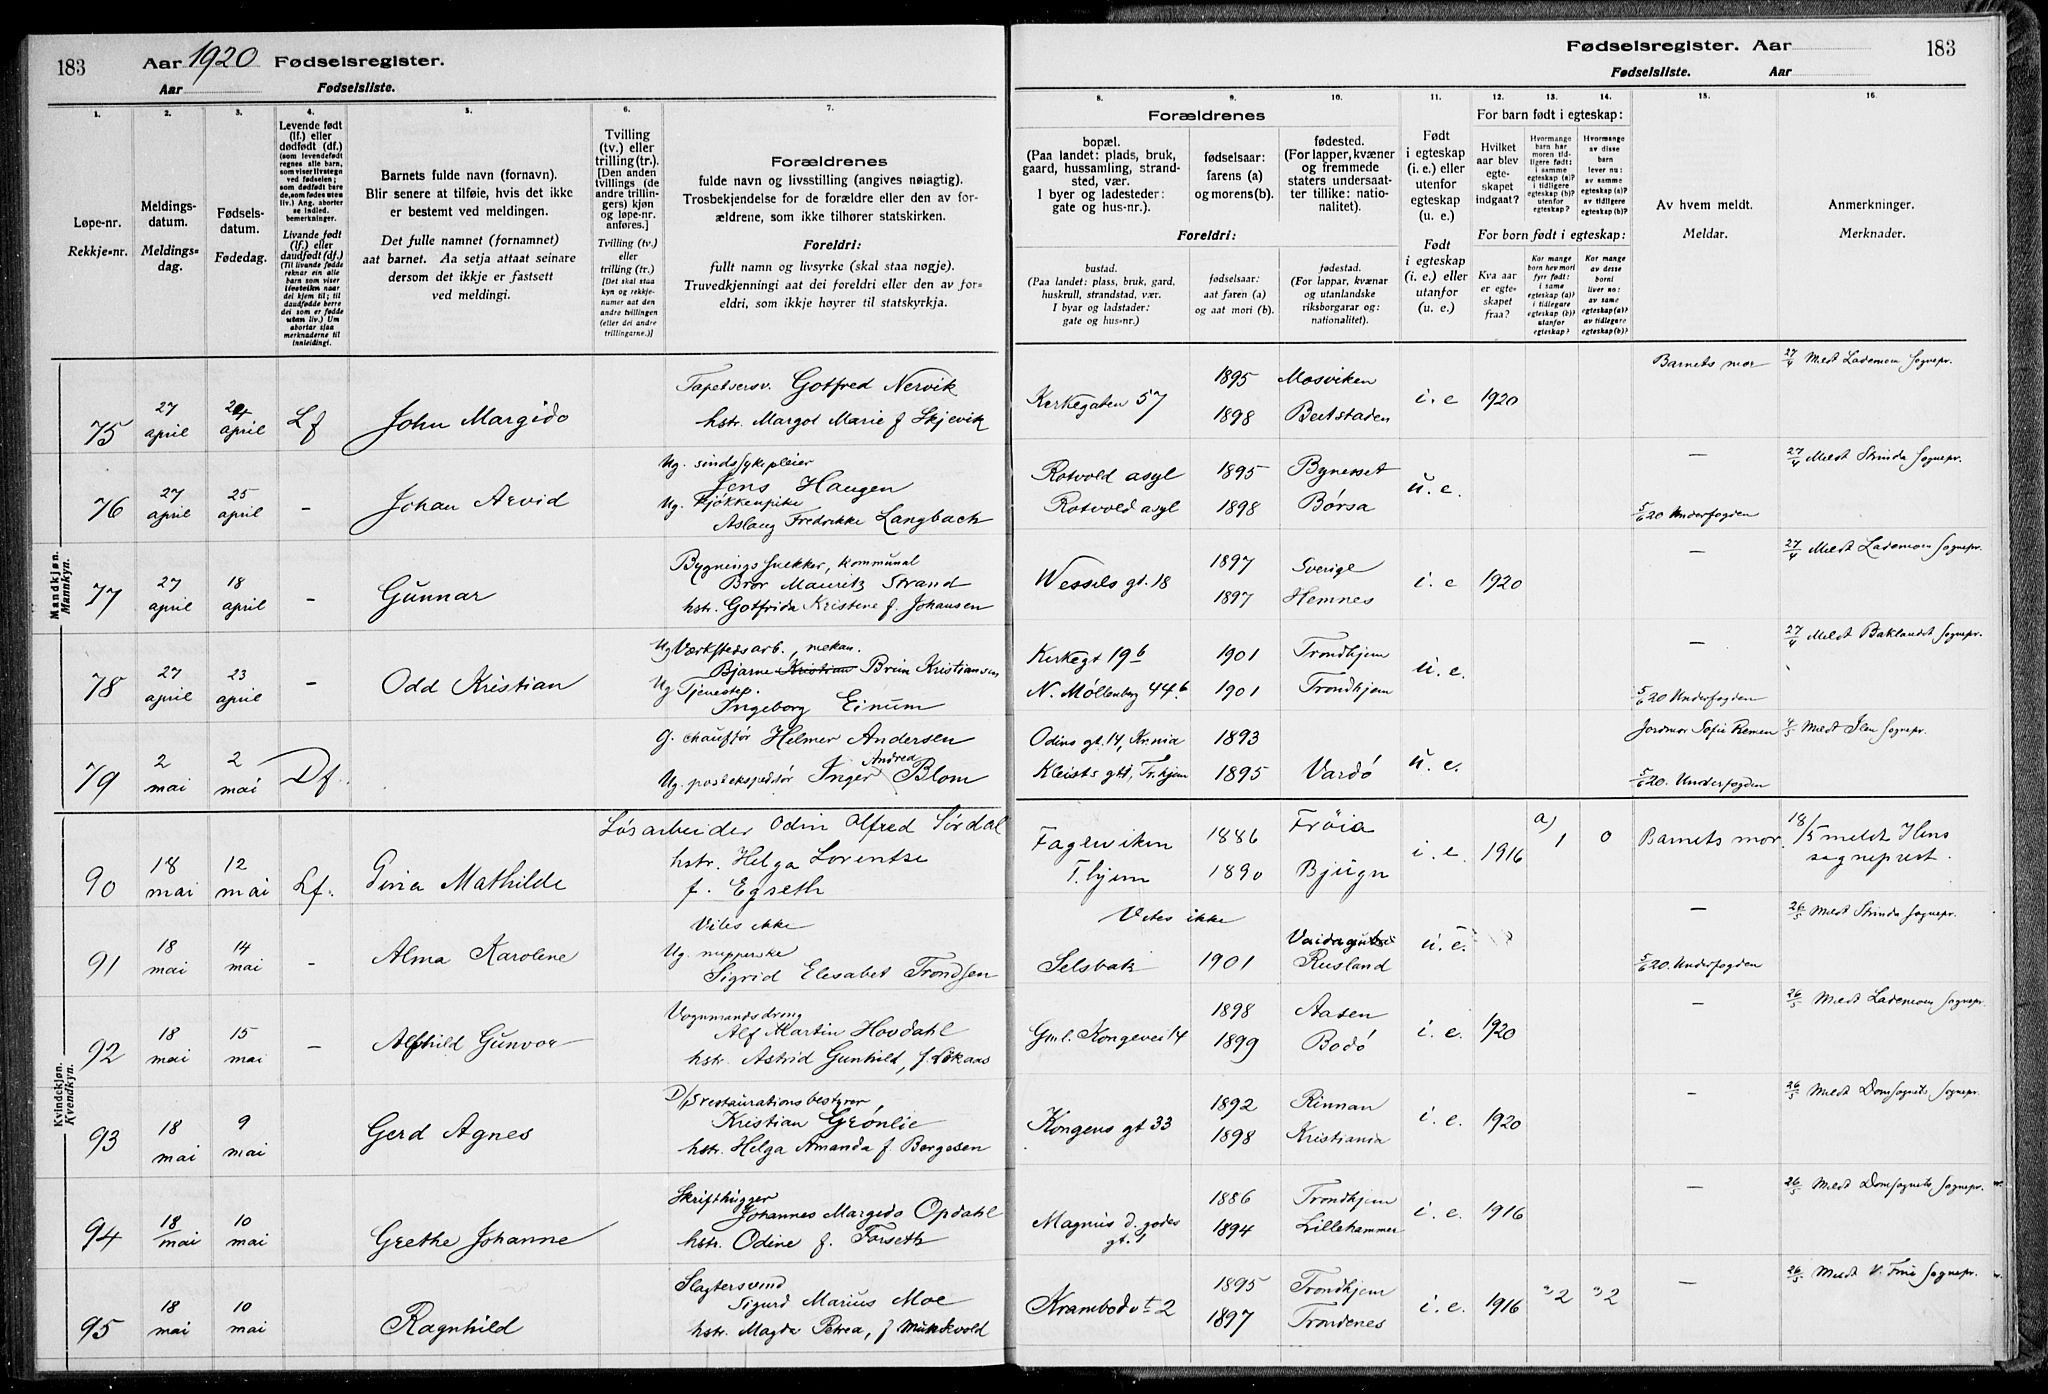 183 Aar 1920 Fødselsregister.
Aar Fødselsliste.
Fødselsregister. Aar 183
Fødselsliste. Aar
1. 2. 3. 4. 5. 6. 7.
Løpe-nr.
Rekkje-nr.
Meldings-
datum.
Meldings-
dag.
Fødsels-
datum.
Fødedag.
Levende født
(lf.) eller
dødfødt (df.)
(som levendefødt
regnes alle barn,
som viser livstegn
ved fødselen;
som dødfødt bare
de, som fødes uten
liv.) Ang. aborter
se indled.
bemerkninger.
Livande født
(lf.) eller
daudfødt (df.)
(Til livande fødde
reknar ein alle
barn som viser
livsteikn naar
dei kjem til; til
daudfødde berre
dei som er fødde
utan liv.) Um
abortar sjaa
merknaderne til
innleidingi.
Barnets fulde navn (fornavn).
Blir senere at tilføie, hvis det ikke
er bestemt ved meldingen.
Det fulle namnet (fornamnet)
aat barnet. Aa setja attaat seinare
dersom det ikkje er fastsett
ved meldingi.
Tvilling
(tv.) eller
trilling (tr.)
[Den anden
tvillings (de
andre trillin-
gers) kjøn
og løpe-nr.
anføres.]
Tvilling (tv.)
eller
trilling (tr.)
[Det skal staa
kyn og rekkje-
numer aat den
andre tvillingen
(eller dei andre
trillingarne.)]
Forældrenes
fulde navn og livsstilling (angives nøiagtig).
Trosbekjendelse for de forældre eller den av for-
ældrene, som ikke tilhører statskirken.
Foreldri:
fullt namn og livsyrke (skal staa nøgje).
Truvedkjenningi aat dei foreldri eller den av for-
eldri, som ikkje høyrer til statskyrkja.
8. 9. 10. 11. 12. 13. 14. 15. 16.
Forældrenes
bopæl.
(Paa landet: plads, bruk,
gaard, hussamling, strand-
sted, vær.
I byer og ladesteder:
gate og hus-nr.).
fødselsaar:
farens (a)
og morens(b).
fødested.
(For lapper, kvæner
og fremmede
staters undersaat-
ter tillike: natio-
nalitet).
Foreldri:
bustad.
(Paa landet: plass, bruk, gard,
huskrull, strandstad, vær.
I byar og ladstader:
gate og hus-nr.)
fødselsaar:
aat faren (a)
og aat mori (b).
fødestad.
(For lappar, kvænar
og utanlandske
riksborgarar og:
nationalitet).
Født
i egteskap
(i. e.) eller
utenfor
egteskap
(u. e.)
Født
i egteskap
(i. e.) eller
utanfor
egteskap
(u. e.).
For barn født i egteskap:
Hvilket
aar blev
egte-
skapet
indgaat?
Hvormange
barn har
moren tid-
ligere født:
i samme
egteskap (a)?
i tidligere
egteskap (b)?
utenfor
egteskap?
Hvormange
av disse
barn
lever nu:
av samme
egteskap (a)?
av tidligere
egteskap (b)?
For born født i egteskap:
Kva aar
er egte-
skapet
fraa?
Kor mange
born hev mori
fyrr født:
i same
egteskap (a)?
i tidlegare
egteskap (b)?
utanfor
egteskap?
Kor mange
av desse
borni
liver no:
av same
egteskap (a)?
av tidlegare
egteskap (b)?
Av hvem meldt.
Meldar.
Anmerkninger.
Merknader.
Mandkjøn.
Mannkyn.
Tapetsersv. Gotfred Nervik 1895 Mosviken Barnets mor 27/4 Meldt Lademoen sognepr.
75 27 april 24 april Lf John Margido Kirkegaten 57 i. e 1920
hstr. Margot Marie f Skjevik 1898 Beitstaden
Ug. sindssykepleier
Jens Haugen Rotvold asyl 1895 Bynesset — 27/4 Meldt Strinda sognepr.
76 27 april 25 april - Johan Arvid u. e.
Ug. Kjøkkenpike
Aslaug Fredrikke Langbach Rotvold asyl 1898 Børsa 5/6 20 Underfogden
Bygnings snekker, kommunal
Bror Mauritz Strand 1897 Sverige — 27/4 Meldt Lademoen sognepr.
77 27 april 18 april - Gunnar Wessels gt. 18 i. e 1920
hstr. Gotfrida Kristene f. Johansen 1897 Hemnes
Ug Værkstedsarb., mekan.
Bjarne Kristian Brun Kristiansen Kirkegt 19b 1901 Trondhjem — 27/4 Meldt Baklandet sognepr.
78 27 april 23 april - Odd Kristian u. e.
Ug Tjenestep.
Ingeborg Einum N. Møllenberg 44b 1901 Trondhjem 5/6 20 Underfogden
G. chauffør Helmer Andersen Odins gt. 14, Kr.nia 1893 Jordmor Sofie Remen 4/5 Meldt Ilen sognepr.
79 2 mai 2 mai Df. u. e.
Ug. postekspeditør Inger Andrea Blom Kleists gt, Tr.hjem 1895 Vardø 5/6 20. Underfogden
Kvindekjøn.
Kvendkyn.
Løsarbeider Odin Alfred Sørdal Fagerviken 1886 Frøia a) 1 0 Barnets mor. 18/5 meldt Ilens
90 18 mai 12 mai Lf. Gina Mathilde i. e. 1916 sogneprest.
hstr. Helga Lorentse
f. Egseth T.hjem 1890 Bjugn
Vites ikke Vites ikke — 26/5 Meldt Strinda sognepr.
91 18 mai 14 mai - Alma Karolene u. e.
Ug. nupperske
Sigrid Elesabet Trondsen Selsbak 1901 Rusland 5/6 20. Underfogden
Vognmandsdreng
Alf Martin Hovdahl 1898 Aasen — 26/5 Meldt Lademoen sognepr.
92 18 mai 15 mai - Alfhild Gunvor Gml. Kongevei 14 i. e. 1920
hstr. Astrid Gunhild, f. Løkaas 1899 Bodø
D/S restaurationsbestyrer,
Kristian Grønlie 1892 Rinnan — 26/5 Meldt Domsognets sognepr.
93 18 mai 9 mai Gerd Agnes Kongens gt 33 i. e. 1920
hstr. Helga Amanda f Borgesen 1898 Kristiania
Skrifthugger
Johannes Margido Opdahl 1886 Trondhjem — 26/5 Meldt Domsognets sognepr.
94 18 mai 10 mai Grethe Johanne Magnus d. godes gt. 1 i. e. 1916
hstr. Odine f. Forseth 1894 Lillehammer
Slagtersvend
Sigurd Marius Moe 1895 Trondhjem — 26/5 Meldt V. Frue sognepr.
95 18 mai 10 mai Ragnhild Krambodvt 2 i. e. 1916 a) 2 a) 2
hstr. Magda Petrea, f Munkvold 1897 Trondenes